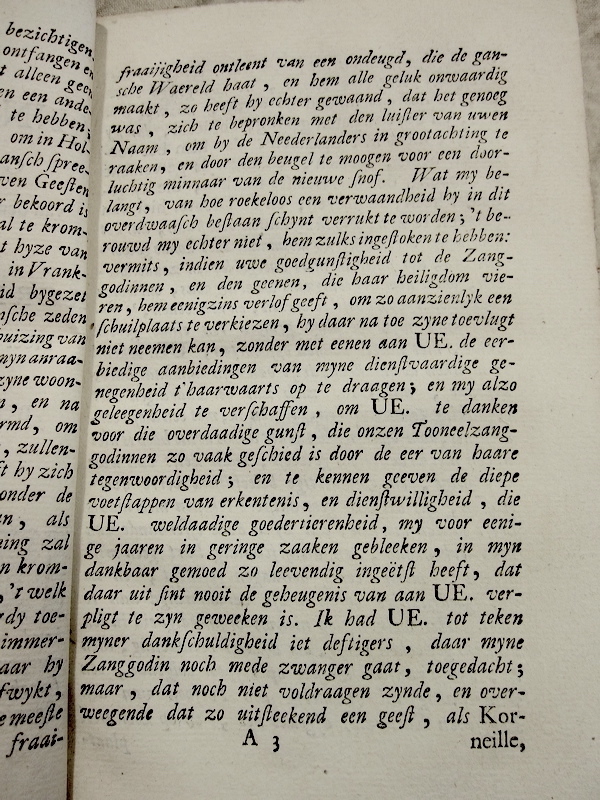 bezichtigen,
ontfangen en
t alleen geen
en een ande-
te hebben;
om in Hol-
ansch spree-
ven Geesten
r bekoord is
al te krom-
t hyze van
in Vrank-
id bygezet
nsche zeden
huizing van
myn anraa-
zyne woon-
n, en na
rmd, om
, zullen-
ft hy zich
onder de
n, als
ning zal
n krom-
, 't welk
rdy toe-
immer-
aar hy
fwykt,
e meeste
fraai-
fraaijigheid ontleent van een ondeugd, die de gan-
sche Waereld haat, en hem alle geluk onwaardig
maakt, zo heeft hy echter gewaand, dat het genoeg
was, zich te bepronken met den luister van uwen
Naam, om by de Neederlanders in grootachting te
raaken, en door den beugel te moogen voor een door-
luchtig minnaar van de nieuwe snof. Wat my be-
langt, van hoe roekeloos een verwaandheid hy in dit
overdwaasch bestaan schynt verrukt te worden; 't be-
rouwd my echter niet, hem zulks ingestoken te hebben:
vermits, indien uwe goedgunstigheid tot de Zang-
godinnen, en den geenen, die haar heiligdom vie-
ren, hem eenigzins verlof geeft, om zo aanzienlyk een
schuilplaats te verkiezen, hy daar na toe zyne toevlugt
niet neemen kan, zonder met eenen aan UE. de eer-
biedige aanbiedingen van myne dienstvaardige ge-
negenheid t'haarwaarts op te draagen; en my alzo
geleegenheid te verschaffen, om UE. te danken
voor die overdaadige gunst, die onzen Tooneelzang-
godinnen zo vaak geschied is door de eer van haare
tegenwoordigheid; en te kennen geeven de diepe
voetstappen van erkentenis, en dienstwilligheid, die
UE. weldaadige goedertierenheid, my voor eeni-
ge jaaren in geringe zaaken gebleeken, in myn
dankbaar gemoed zo leevendig ingeëtst heeft, dat
daar uit sint nooit de geheugenis van aan UE. ver-
pligt te zyn geweeken is. Ik had UE. tot teken
myner dankschuldigheid iet deftigers, daar myne
Zanggodin noch mede zwanger gaat, toegedacht;
maar, dat noch niet voldraagen zynde, en over-
weegende dat zo uitsteekend een geest, als Kor-
A 3 neille,